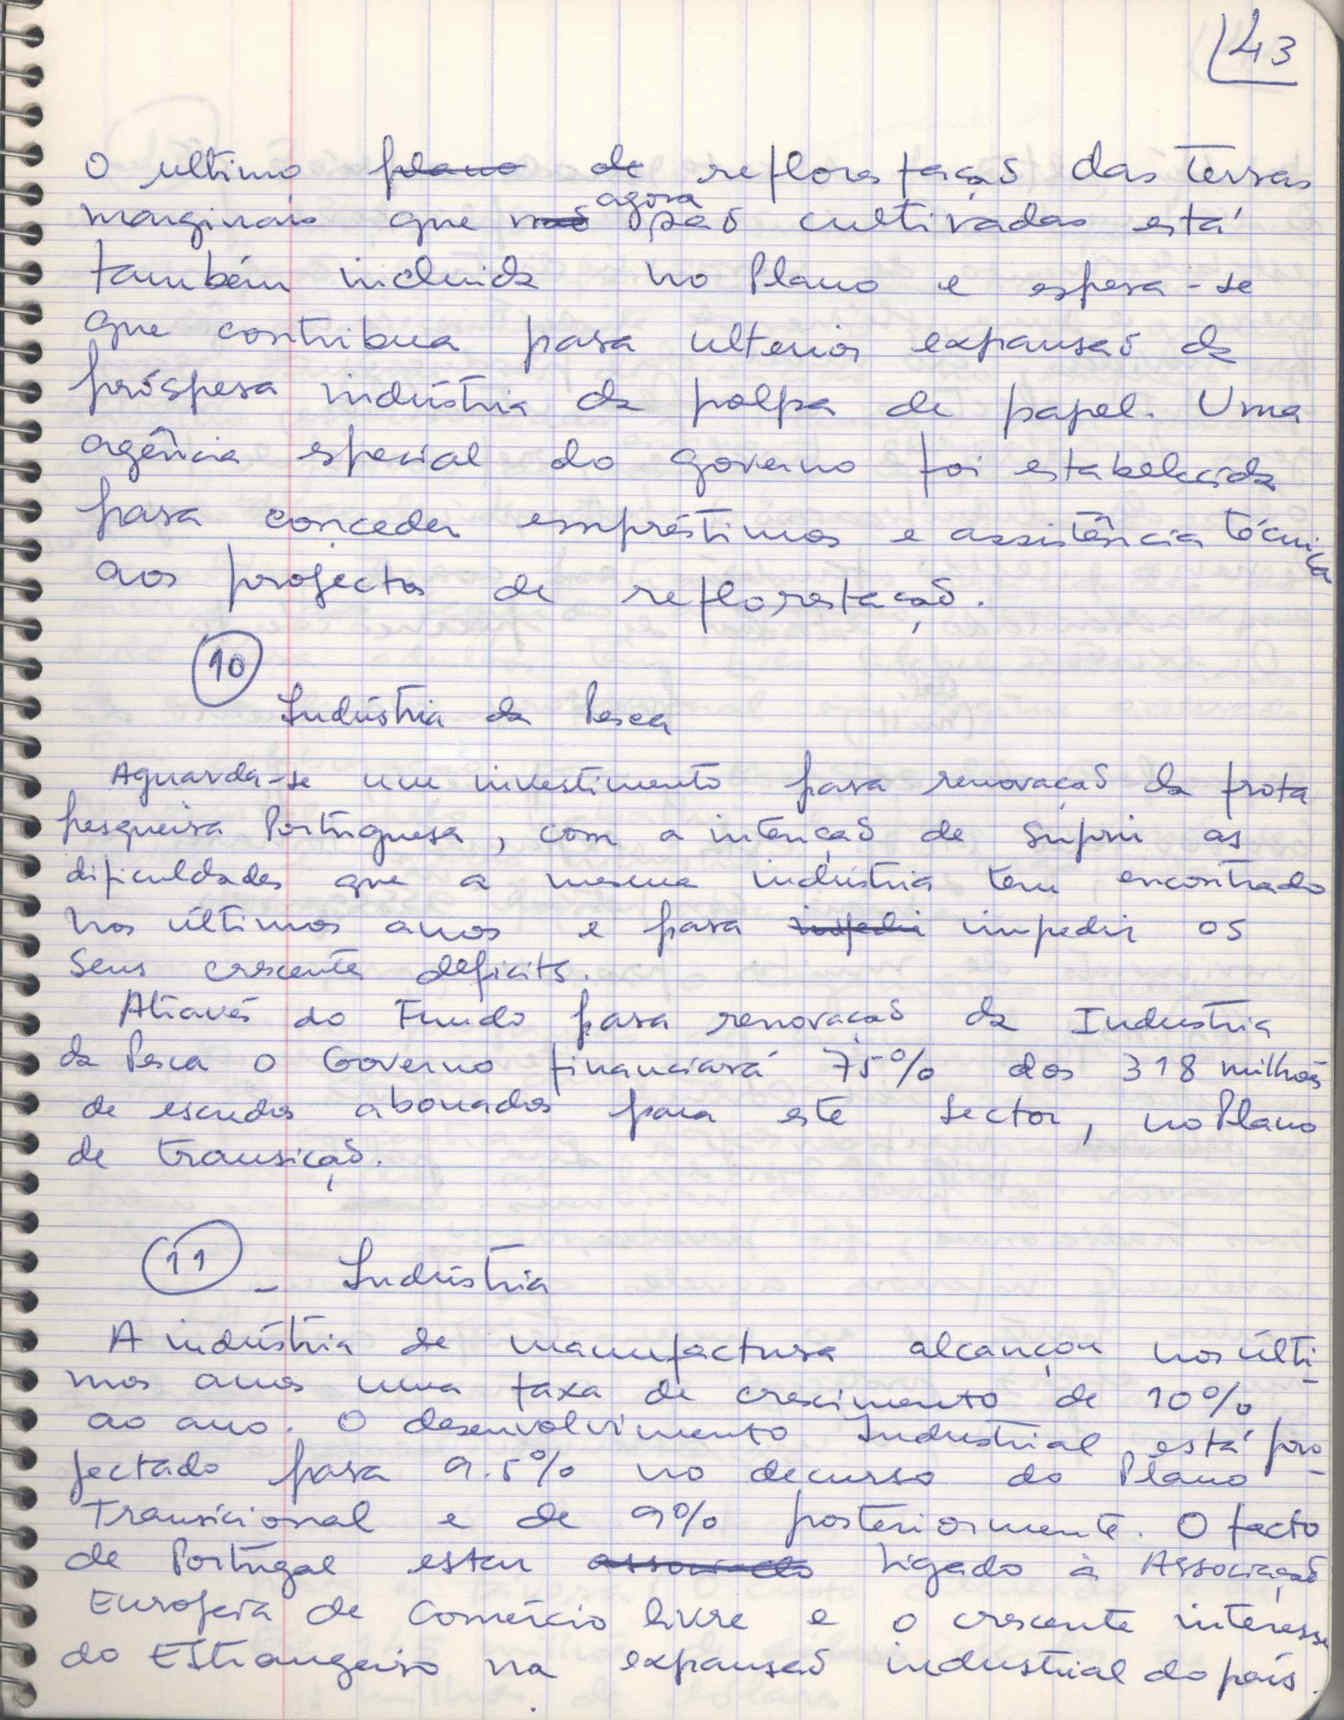 43
O ultimo plano de reflorestação das terras
marginais que não agora são cultivadas está
também incluida no Plano e espera-se
que contribua para ulterior expansão da
próspera indústria da polpa de papel. Uma
agência especial do governo foi estabelecida
para conceder empréstimos e assistência técnica
aos projectos de reflorestação.
10
Indústria da Pesca
Aguarda-se um investimento para renovação da frota
pesqueira Portuguesa, com a intenção de suprir as
dificuldades que a mesma indústria tem encontrado
nos últimos anos e para impedir impedir os
seus crescente deficits.
Através do Fundo para renovação da Industria
da Pesca o Governo financiará 75% dos 318 milhões
de escudos abonados para este sector, no Plano
de transição.
11 - Indústria
A indústria de manufactura alcançou nos últi-
mos anos uma taxa de crescimento de 10%
ao ano. O desenvolvimento Industrial está pro-
jectado para 9.5% no decurso do Plano
Transicional e de 9% posteriormente. O facto
de Portugal estar associado ligado à Associação
Europeia de Comércio livre e o crescente interesse
do Estrangeiro na expansão industrial do país.